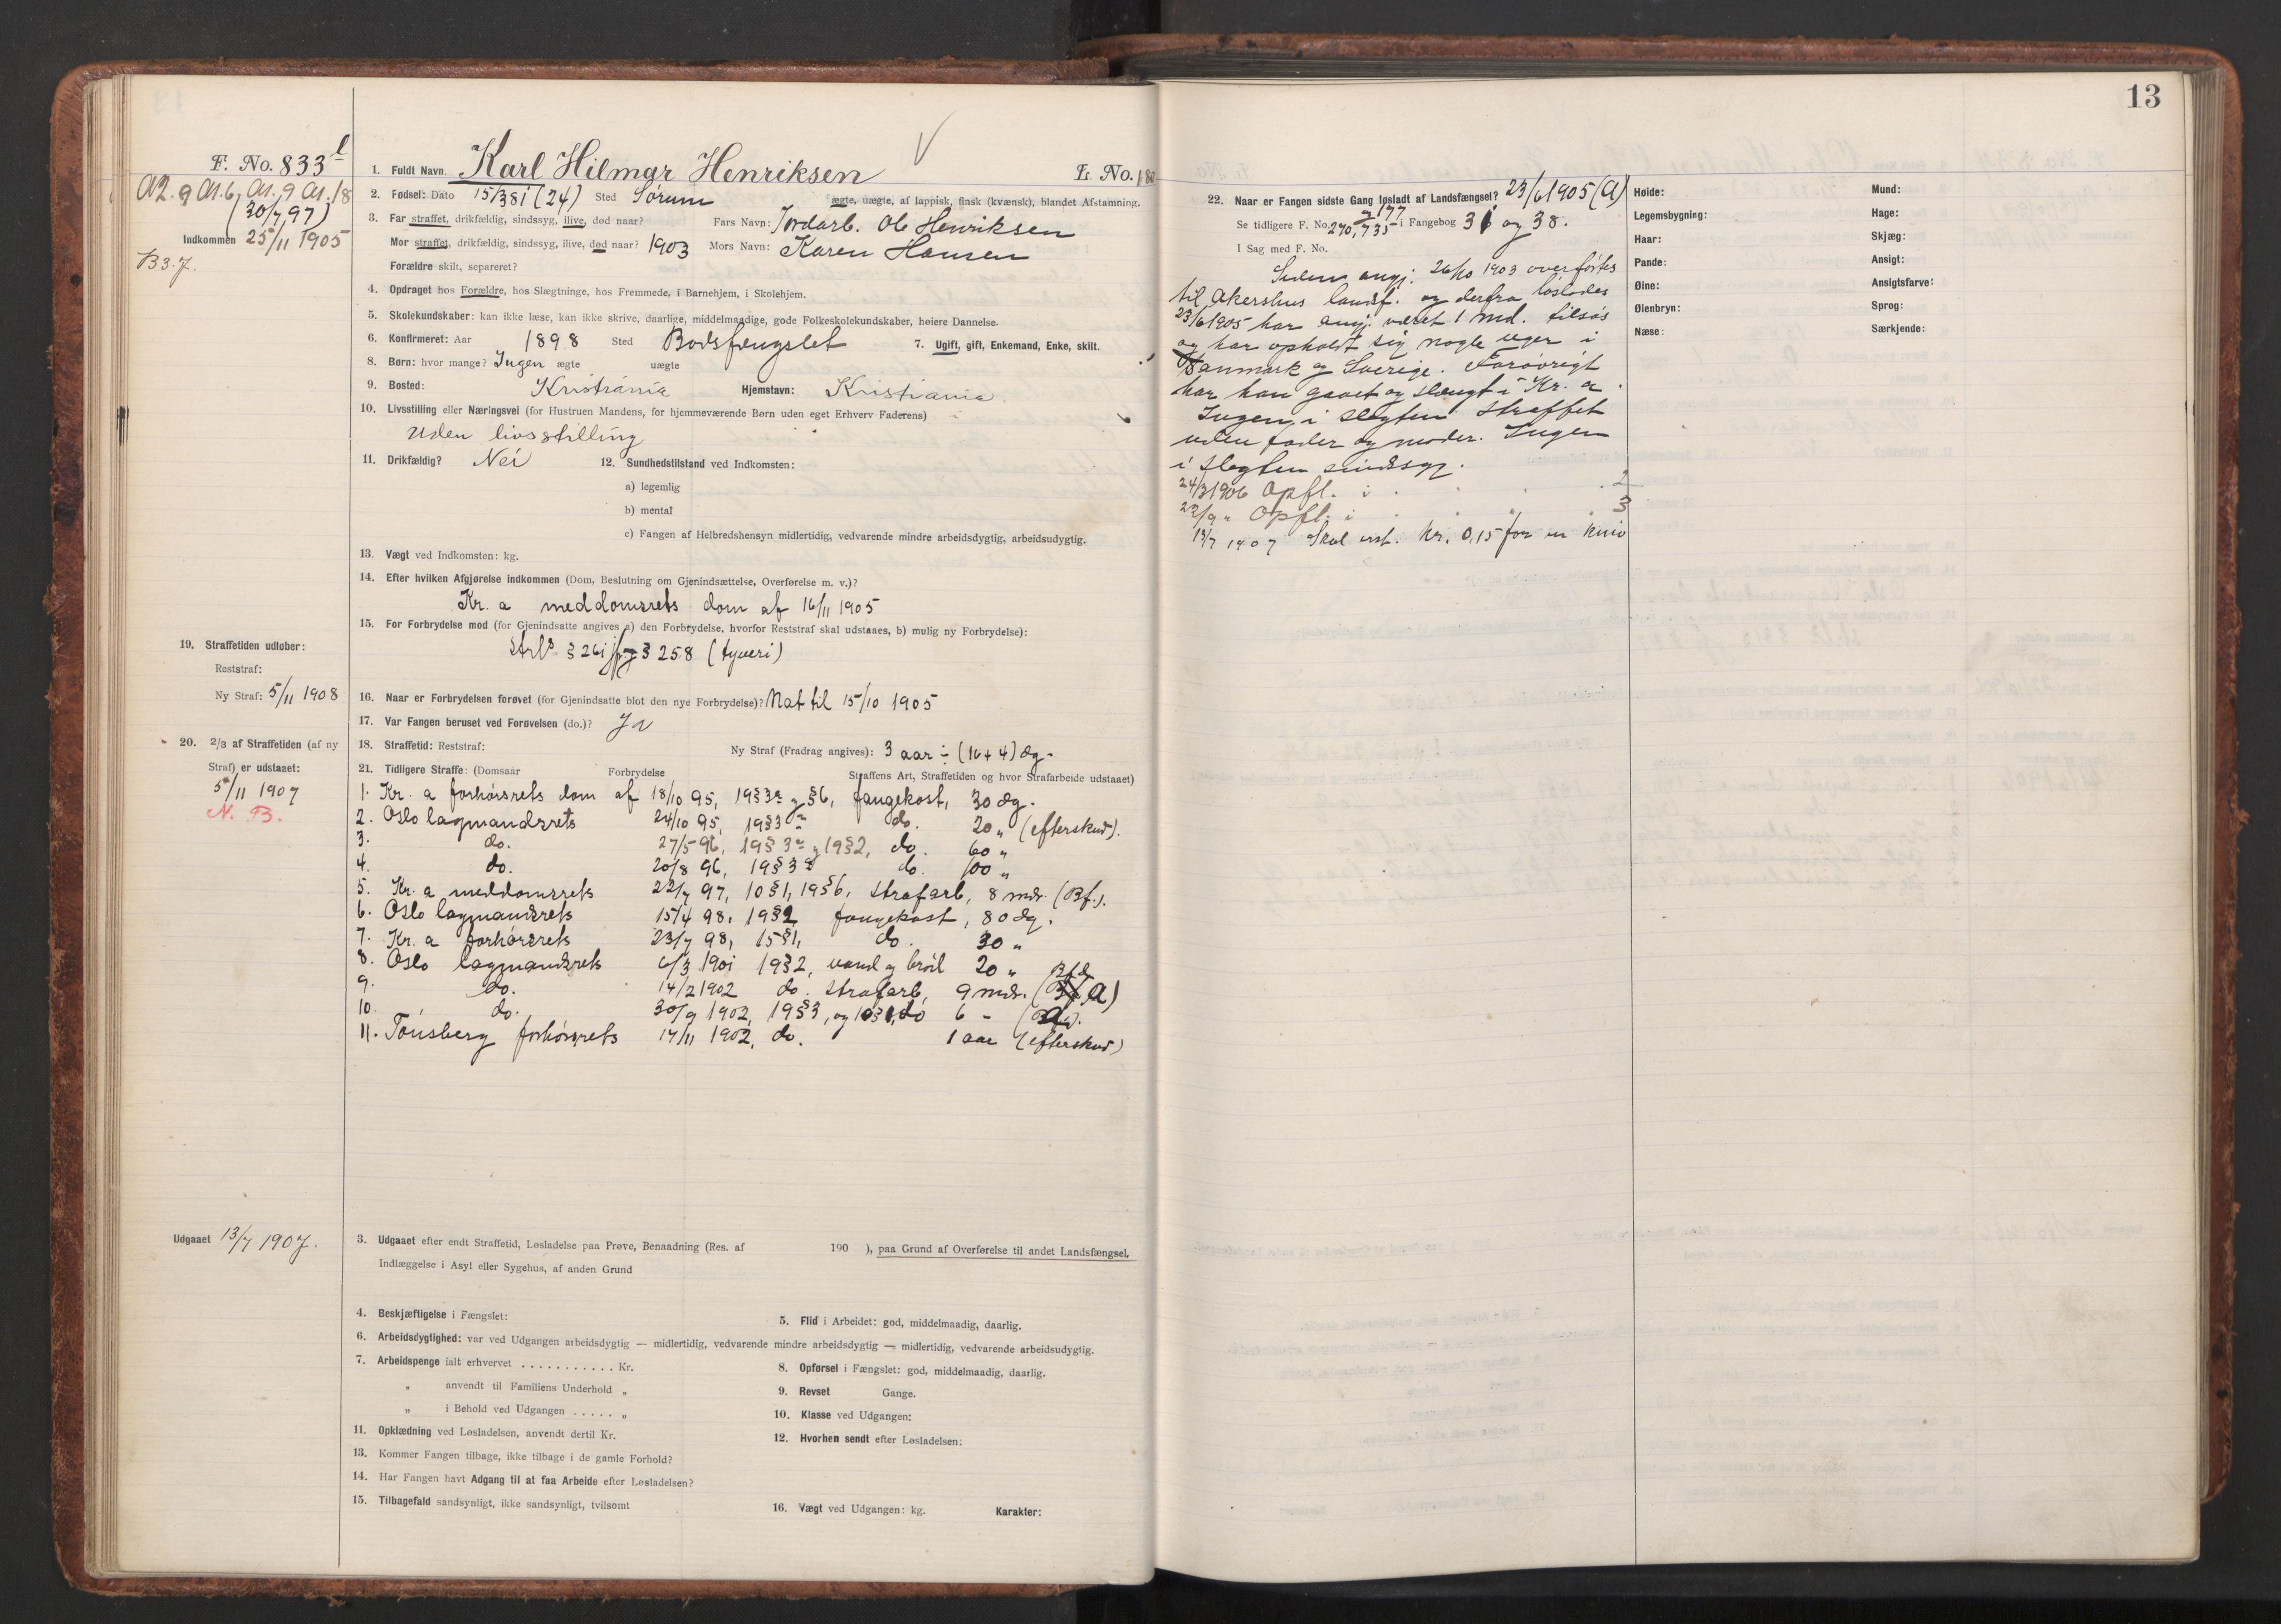 13
F. No. 833 l
A2. 9 A1. 6, A1. 9 A1. 18
(30/7 97)
Indkommen 25/11 1905
B3. 7.
1. Fuldt Navn. Karl Hilmar Henriksen L. No.
2. Fødsel: Dato 15/3 81 (24) Sted Sørum ægte, uægte, af lappisk, finsk (kvænsk), blandet Afstamning.
3. Far straffet, drikfældig, sindssyg, ilive, død naar? Fars Navn: Jordarb. Ole Henriksen
Mor straffet, drikfældig, sindssyg, ilive, død naar? 1903 Mors Navn: Karen Hansen
Forældre skilt, separeret?
4. Opdraget hos Forældre, hos Slægtninge, hos Fremmede, i Barnehjem, i Skolehjem.
5. Skolekundskaber: kan ikke læse, kan ikke skrive, daarlige, middelmaadige, gode Folkeskolekundskaber, høiere Dannelse.
6. Konfirmeret: Aar 1898 Sted Bodsfængslet 7. Ugift, gift, Enkemand, Enke, skilt.
8. Børn: hvor mange? Ingen ægte uægte
9. Bosted: Kristiania Hjemstavn: Kristiania
10. Livsstilling eller Næringsvei (for Hustruen Mandens, for hjemmeværende Børn uden eget Erhverv Faderens)
Uden livsstilling
11. Drikfældig? Nei 12. Sundhedstilstand ved Indkomsten:
a) legemlig
b) mental
c) Fangen af Helbredshensyn midlertidig, vedvarende mindre arbeidsdygtig, arbeidsudygtig.
13. Vægt ved Indkomsten: kg.
14. Efter hvilken Afgjørelse indkommen (Dom, Beslutning om Gjenindsættelse, Overførelse m. v.)?
Kr. a meddomsrets dom af 16/11 1905
15. For Forbrydelse mod (for Gjenindsatte angives a) den Forbrydelse, hvorfor Reststraf skal udstaaes, b) mulig ny Forbrydelse):
Strl. § 261 jfr. § 258 (tyveri)
16. Naar er Forbrydelsen forøvet (for Gjenindsatte blot den nye Forbrydelse)? Nat til 15/10 1905
17. Var Fangen beruset ved Forøvelsen (do.)? Ja
18. Straffetid: Reststraf: Ny Straf (Fradrag angives): 3 aar ÷ (16 + 4) dg.
19. Straffetiden udløber:
Reststraf:
Ny Straf: 5/11 1908
20. 2/3 af Straffetiden (af ny
Straf) er udstaaet:
5/11 1907
N. B.
21. Tidligere Straffe: (Domsaar Forbrydelse Straffens Art, Straffetiden og hvor Strafarbeide udstaaet)
1. Kr. a forhørsrets dom af 18/10 95, 19§3a og §6, fangekost, 30 dg.
2. Oslo lagmandsrets 24/10 95, 19§3a do. 20 „ (efterskud).
3. do. 27/5 96, 19§3a og 19§2, do. 60 „
4. do. 20/8 96, 19§3a do. 100 „
5. Kr. a meddomsrets 22/7 97, 10§1, 19§6, strafarb, 8 mdr. (Bf.).
6. Oslo lagmandsrets 15/4 98, 19§2 fangekost, 80 dg.
7. Kr. a forhørsrets 23/7 98, 15§1, do. 30 „
8. Oslo lagmandsrets 6/3 1901 19§2, vand og brød 20 „
9. do. 14/2 1902 do. strafarb, 9 mdr. (A)
10. do. 30/9 1902, 19§3, og do 6 -
11. Tønsberg forhørsrets 17/11 1902, do. 1 aar (efterskud)
Udgaaet 13/7 1907.
3. Udgaaet efter endt Straffetid, Løsladelse paa Prøve, Benaadning (Res. af 190 ), paa Grund af Overførelse til andet Landsfængsel,
Indlæggelse i Asyl eller Sygehus, af anden Grund
4. Beskjæftigelse i Fængslet:
5. Flid i Arbeidet: god, middelmaadig, daarlig.
6. Arbeidsdygtighed: var ved Udgangen arbeidsdygtig — midlertidig, vedvarende mindre arbeidsdygtig — midlertidig, vedvarende arbeidsudygtig.
7. Arbeidspenge ialt erhvervet . . . . . . . . . . . Kr.
8. Opførsel i Fængslet: god, middelmaadig, daarlig.
„ anvendt til Familiens Underhold „
9. Revset Gange.
„ i Behold ved Udgangen . . . . . „
10. Klasse ved Udgangen:
11. Opklædning ved Løsladelsen, anvendt dertil Kr.
12. Hvorhen sendt efter Løsladelsen:
13. Kommer Fangen tilbage, ikke tilbage i de gamle Forhold?
14. Har Fangen havt Adgang til at faa Arbeide efter Løsladelsen?
15. Tilbagefald sandsynligt, ikke sandsynligt, tvilsomt
16. Vægt ved Udgangen: kg. Karakter:
22. Naar er Fangen sidste Gang løsladt af Landsfængsel? 23/6 1905 (A)
og 177
Se tidligere F. No. 270, 735 i Fangebog 36 og 38.
I Sag med F. No.
Siden angj. 26/10 1903 overførtes
til Akershus landsf. og derfra løslades
23/6 1905 har angj. været 1 md. tilsøs
og har opholdt sig nogle uger i
Danmark og Sverige. Forøvrigt
har han gaaet og slængt i Kr. a.
Ingen i slegten straffet
uden fader og moder. Ingen
i slegten sindssyg.
24/3 1906 Opfl. i . . . 2
22/9 „ Opfl. i . . . 3
13/7 1907 Skal erst. Kr. 0,15 for en kniv
Høide:
Legemsbygning:
Haar:
Pande:
Øine:
Øienbryn:
Næse:
Mund:
Hage:
Skjæg:
Ansigt:
Ansigtsfarve:
Sprog:
Særkjende: